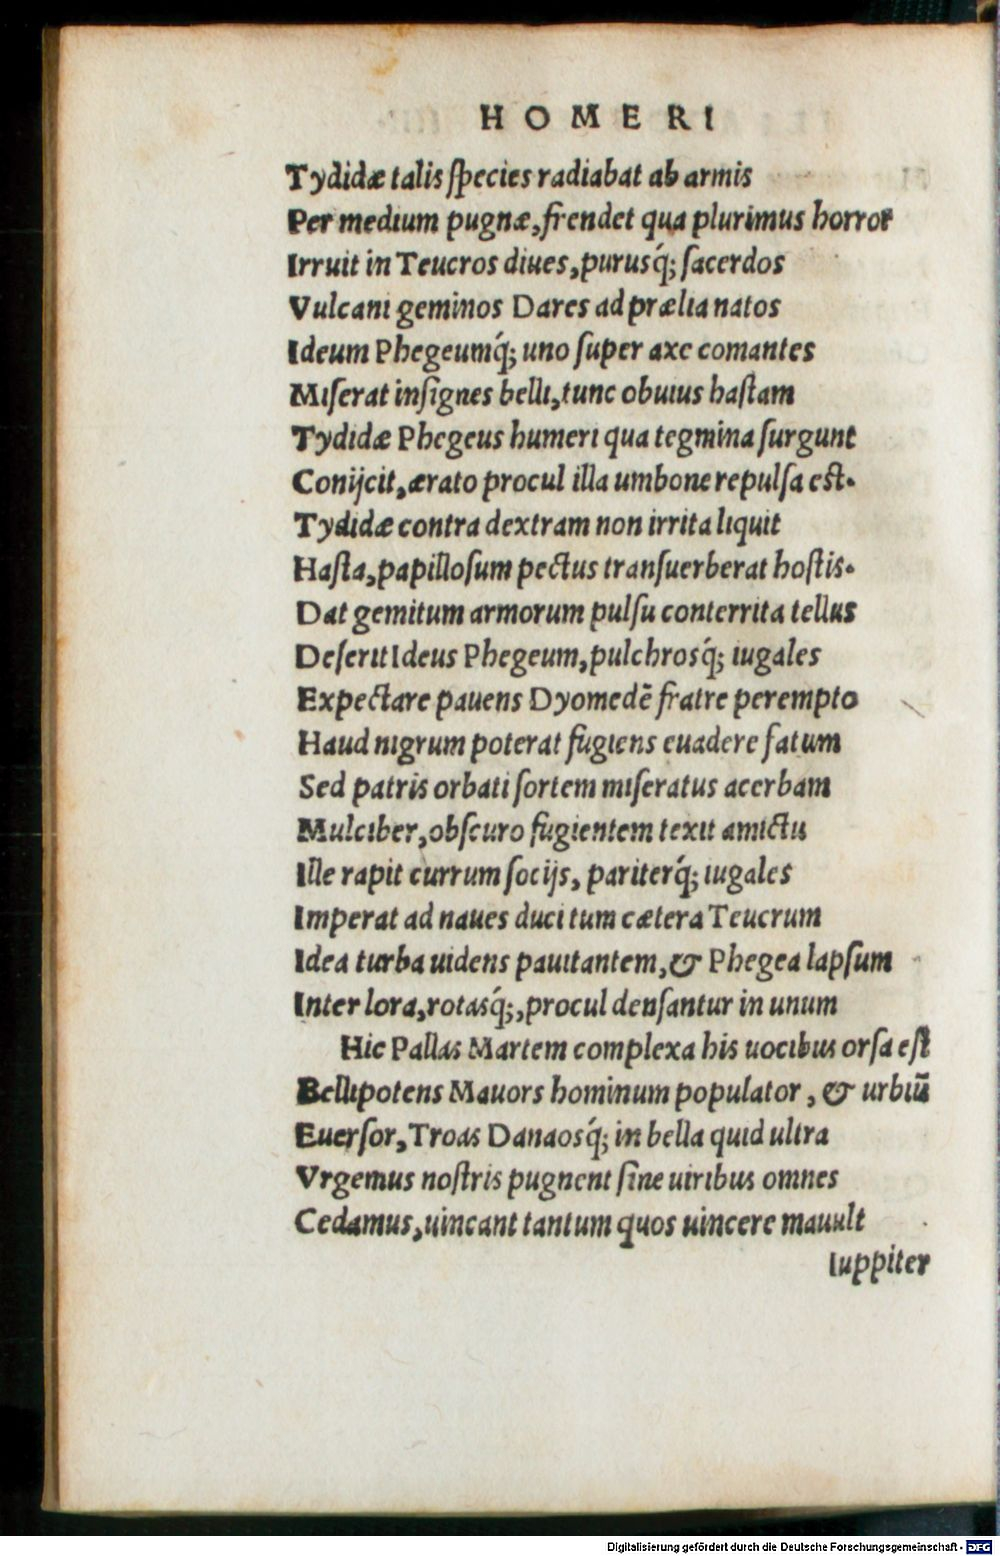 HOMERI
Tydidæ talis ſpecies radiabat ab armis
Per medium pugnæ, frendet qua plurimus horror
Irruit in Teucros diues, purusq́; ſacerdos
Vulcani geminos Dares ad prælia natos
Ideum Phegeumq́; uno ſuper axe comantes
Miſerat inſignes belli, tunc obuius haſtam
Tydidæ Phegeus humeri qua tegmina ſurgunt
Conijcit, ærato procul illa umbone repulſa est.
Tydidæ contra dextram non irrita liquit
Haſta, papilloſum pectus tranſuerberat hoſtis.
Dat gemitum armorum pulſu conterrita tellus
Deſerit Ideus Phegeum, pulchrosq́; iugales
Expectare pauens Dyomedē fratre perempto
Haud nigrum poterat fugiens euadere fatum
Sed patris orbati ſortem miſeratus acerbam
Mulciber, obſcuro fugientem texit amictu
Ille rapit currum ſocijs, pariterq́; iugales
Imperat ad naues duci tum cætera Teucrum
Idea turba uidens pauitantem, & Phegea lapſum
Inter lora, rotasq́;, procul denſantur in unum
Hic Pallas Martem complexa his uocibus orſa eſt
Bellipotens Mauors hominum populator, & urbiū
Euerſor, Troas Danaosq́; in bella quid ultra
Vrgemus noſtris pugnent ſine uiribus omnes
Cedamus, uincant tantum quos uincere mauult
Iuppiter
Digitalisierung gefördert durch die Deutsche Forschungsgemeinschaft - DFG